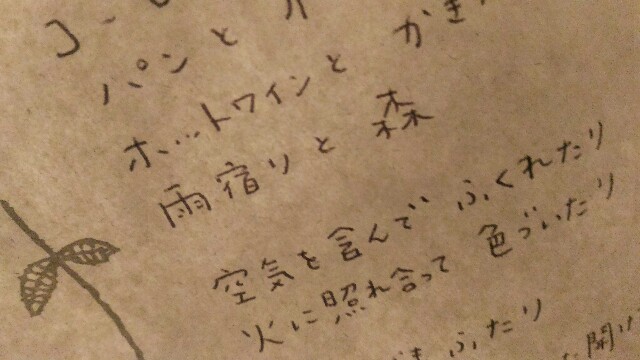 コー
パンと
ホットワインと かき
雨宿りと 森
空気を含んで ふくれたり
火に照れ合って 色づいたり
ふたり
開け